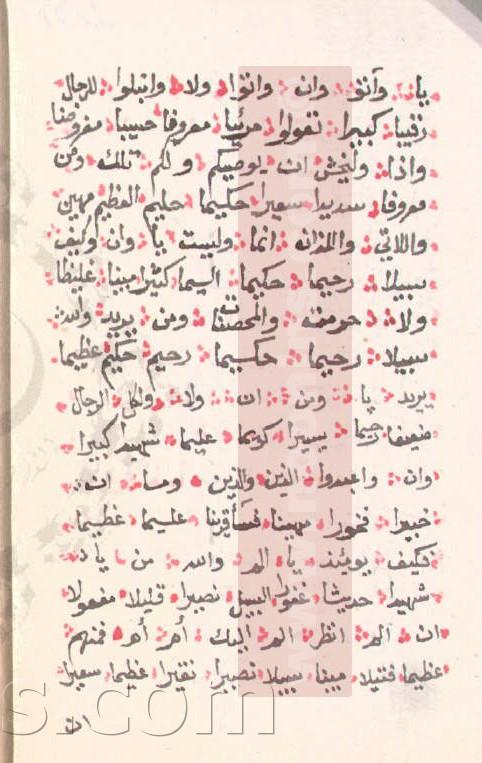 يا وآتوا وان وآتوا ولا وابتلوا للرجال
رقيبا كبيرا تعولوا مريئا معروفا حسيبا مفروضا
واذا وليخش ان يوصيكم ولكم تلك ومن
معروفا سديدا سعيرا حكيما حليم العظيم مهين
واللاتي واللذان انما وليست يا وان وكيف
سبيلا رحيما حكيما اليما كثيرا مبينا غليظا
ولا حرمت والمحصنات ومن يريد والله
سبيلا رحيما حكيما رحيم حكيم عظيما
يريد يا ومن ان ولا ولكل الرجال
ضعيفا رحيما يسيرا كريما عليما شهيدا كبيرا
وان واعبدوا الذين والذين وماذا ان
خبيرا فخورا مهينا قرينا عليما عظيما
فكيف يومئذ يا الم والله من يا
شهيدا حديثا غفورا السبيل نصيرا قليلا مفعولا
ان الم انظر الم اولئك ام ام فمنهم
عظيما فتيلا مبينا سبيلا نصيرا نقيرا عظيما سعيرا
ان
s.com